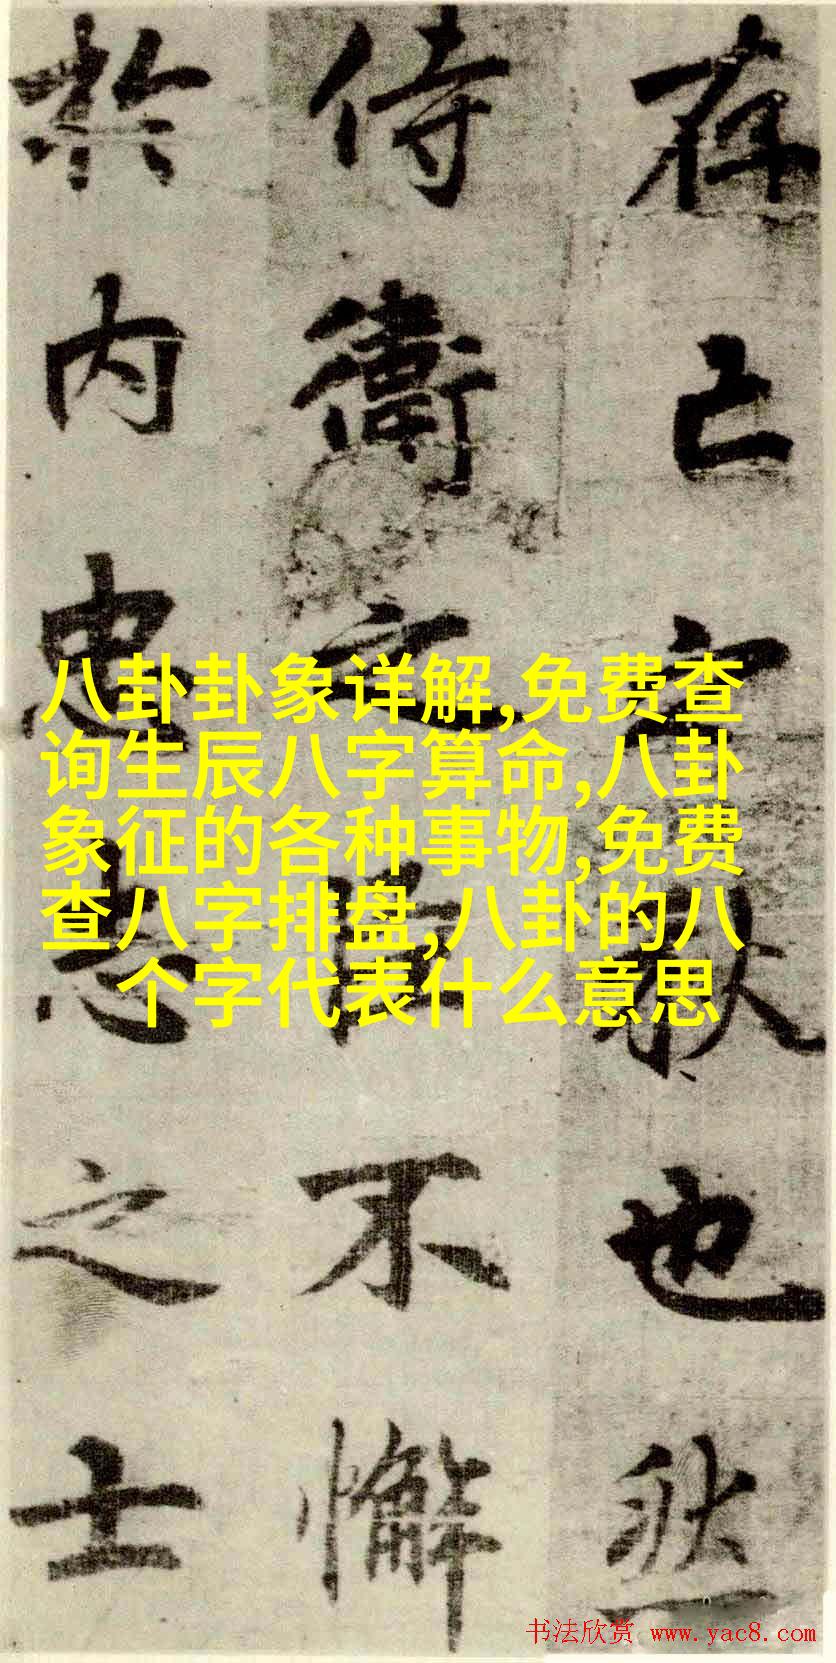 存亡之秋也然
侍衛之臣不懈
於内忠志之士
八卦卦象详解,免费查
询生辰八字算命,八卦
象征的各种事物,免费
查八字排盘,八卦的八
个字代表什么意思
书法欣赏 www.yac8.com